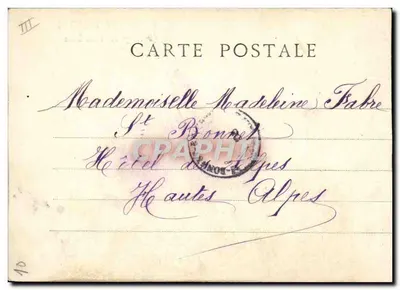 III
CARTE POSTALE
Mademoiselle Madeleine Fabre
St Bonnet
Hôtel des Alpes
Hautes Alpes
10